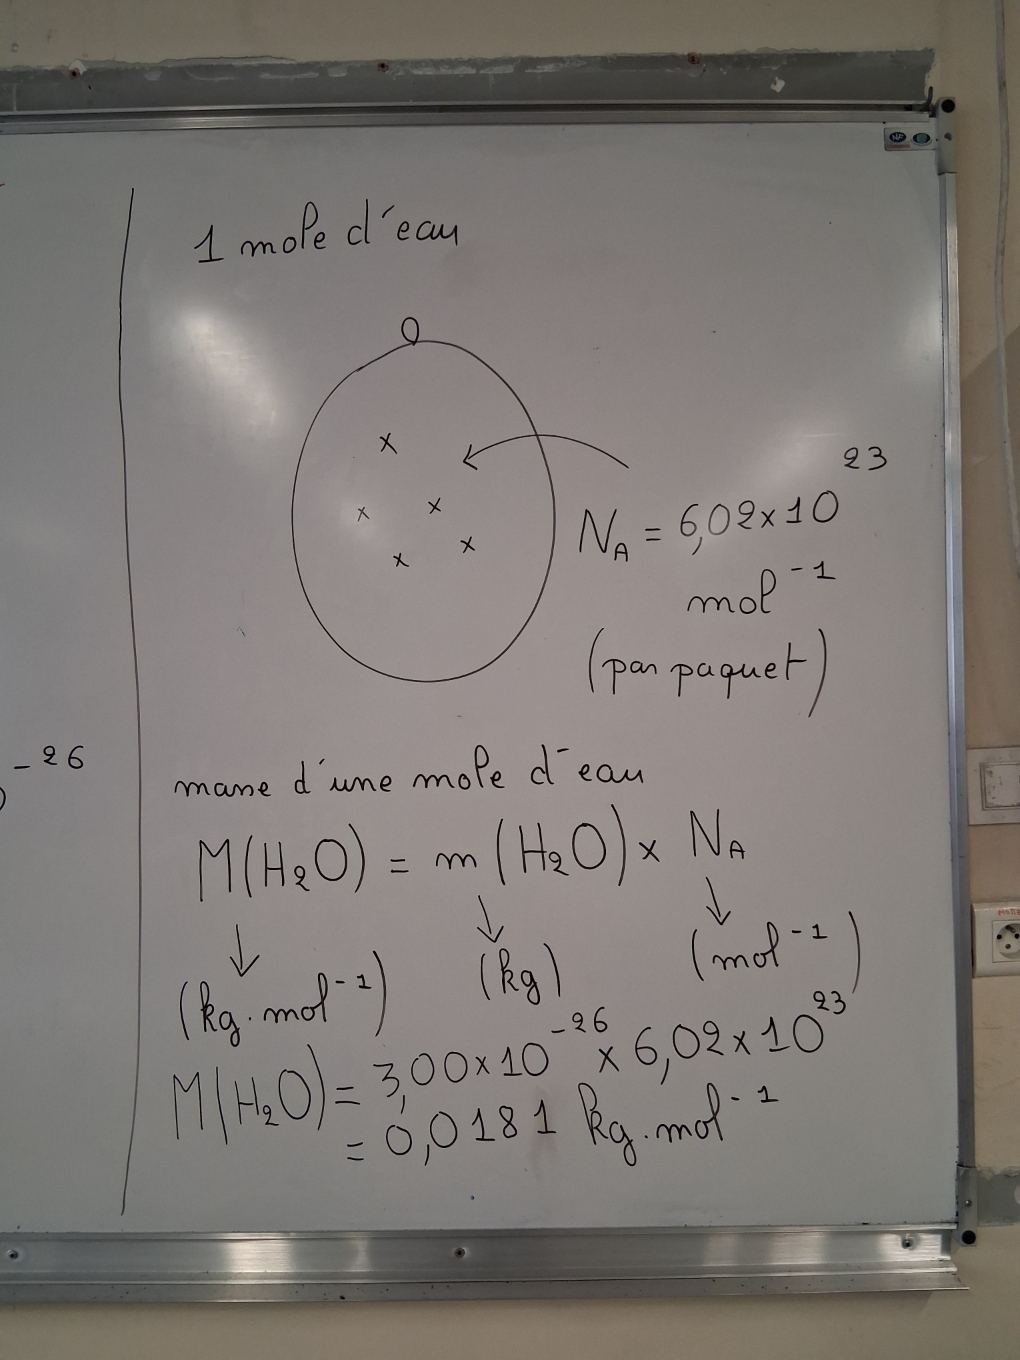 1 mole d'eau
N_A = 6,02 × 10^23
mol^-1
(par paquet)
-26
masse d'une mole d'eau
M(H₂O) = m(H₂O) × N_A
(kg.mol^-1) (kg) (mol^-1)
M(H₂O) = 3,00 × 10^-26 × 6,02 × 10^23
= 0,0181 kg.mol^-1